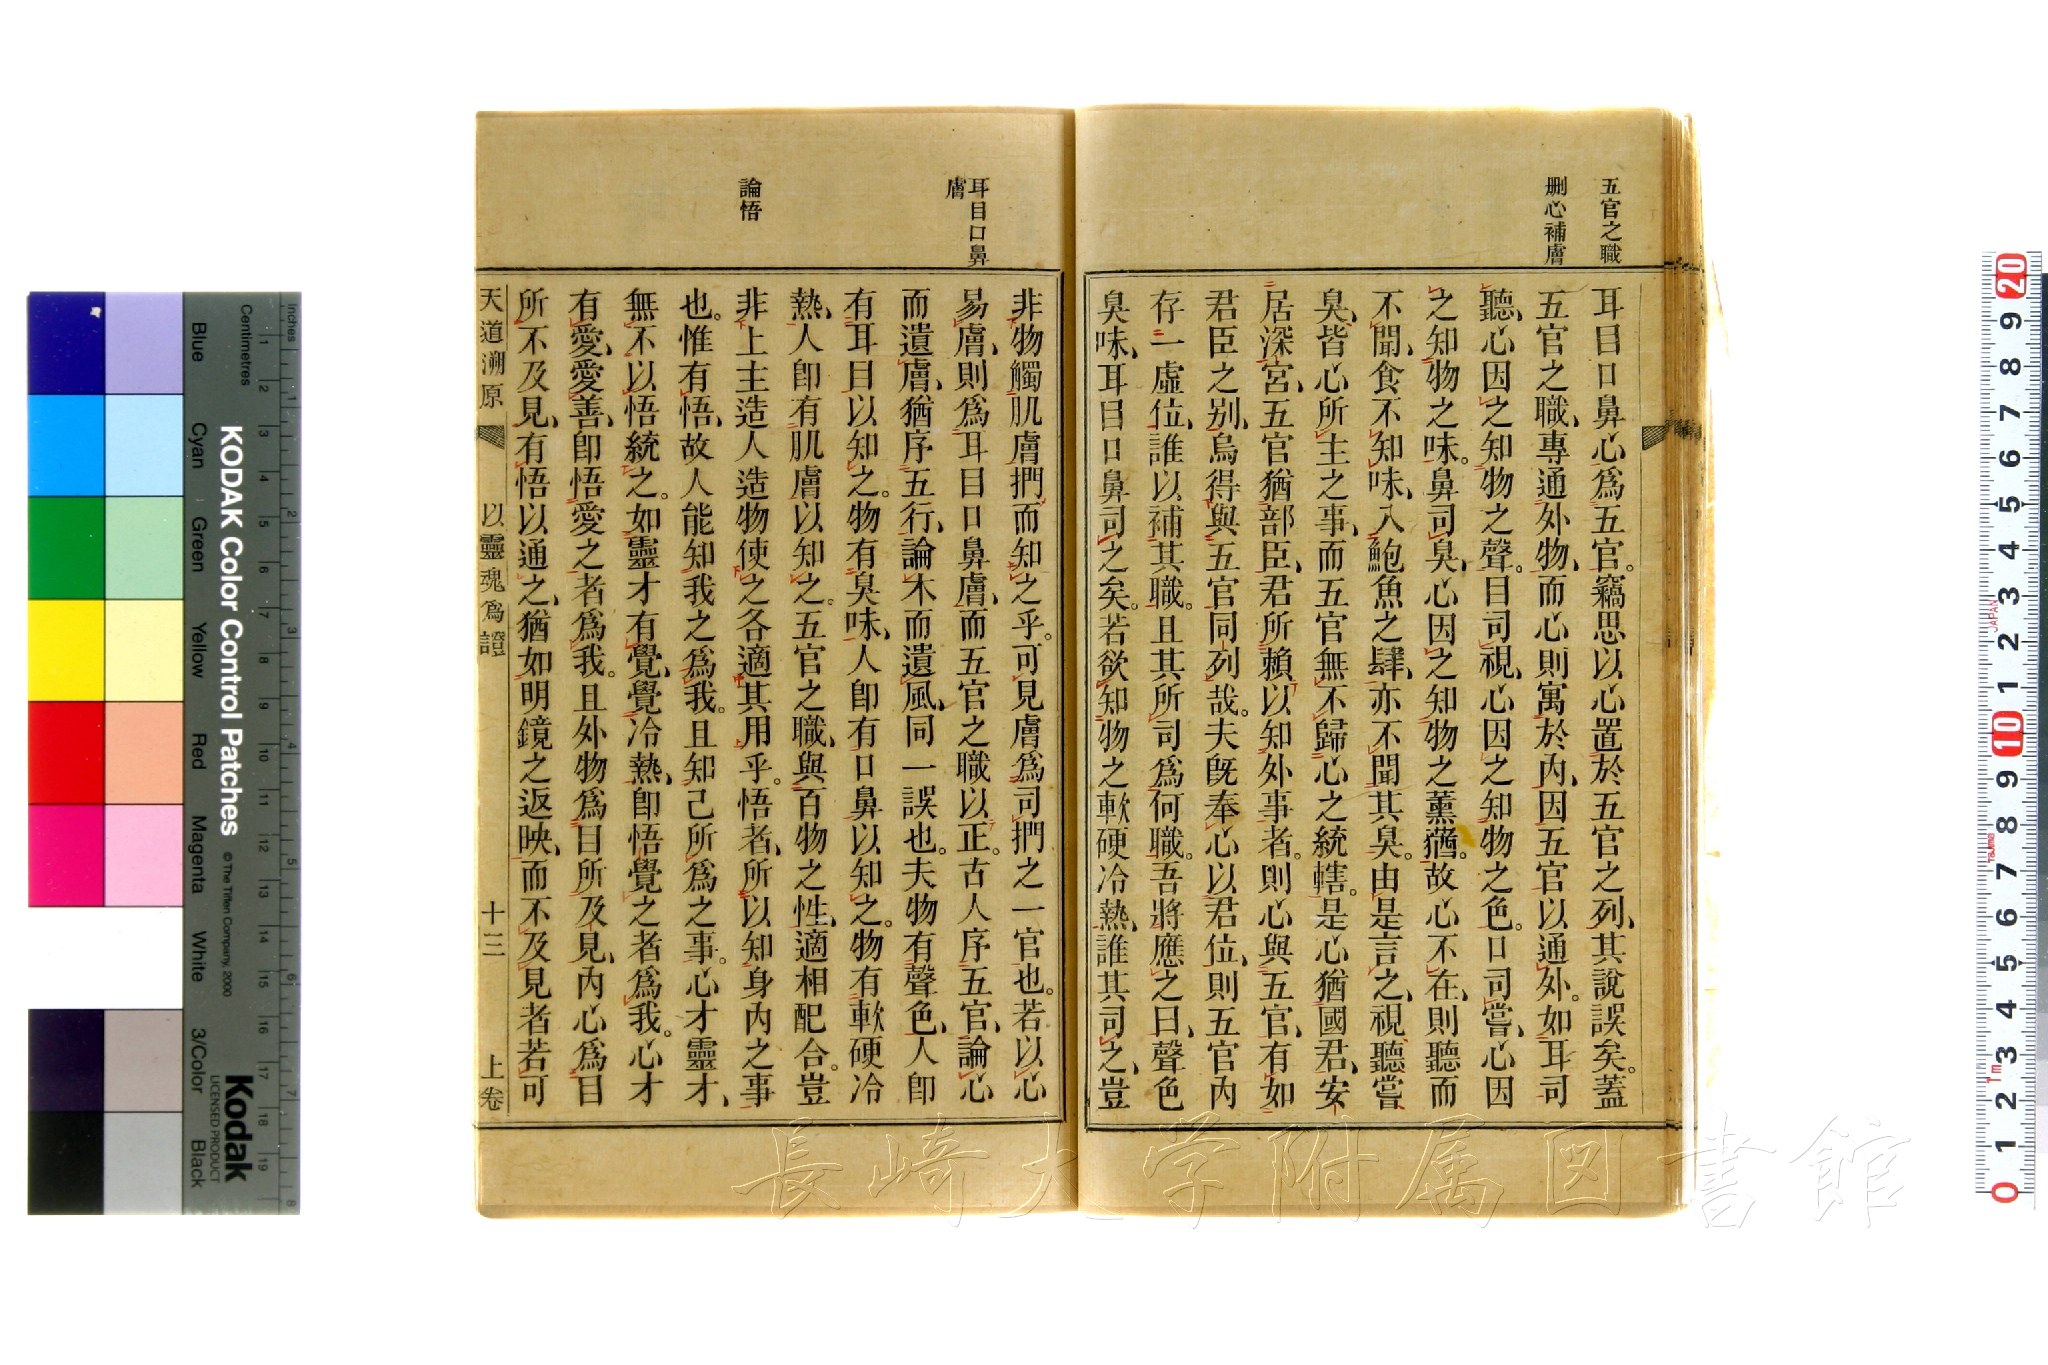 五官之職
刪心補膚
耳目口鼻心爲五官。竊思以心置於五官之列、其說誤矣。蓋
五官之職、專通外物、而心則寓於內、因五官以通外。如耳司
聽、心因之知物之聲。目司視、心因之知物之色。口司嘗、心因
之知物之味。鼻司臭、心因之知物之薰蕕。故心不在、則聽而
不聞、食不知味、入鮑魚之肆、亦不聞其臭。由是言之、視聽嘗
臭、皆心所主之事、而五官無不歸心之統轄。是心猶國君、安
居深宮、五官猶部臣、君所賴以知外事者。則心與五官、有如
君臣之别、烏得與五官同列哉。夫旣奉心以君位、則五官內
存一虛位、誰以補其職。且其所司爲何職。吾將應之曰、聲色
臭味、耳目口鼻司之矣。若欲知物之軟硬冷熱、誰其司之、豈
耳目口鼻
膚
論悟
非物觸肌膚捫而知之乎。可見膚爲司捫之一官也。若以心
易膚、則爲耳目口鼻膚、而五官之職以正。古人序五官、論心
而遺膚、猶序五行、論木而遺風、同一誤也。夫物有聲色、人卽
有耳目以知之。物有臭味、人卽有口鼻以知之。物有軟硬冷
熱、人卽有肌膚以知之。五官之職、與百物之性、適相配合。豈
非上主造人造物使之各適其用乎。悟者、所以知身內之事
也。惟有悟、故人能知我之爲我。且知己所爲之事。心才靈才、
無不以悟統之。如靈才有覺、覺冷熱、卽悟覺之者爲我。心才
有愛、愛善、卽悟愛之者爲我。且外物爲目所及見、內心爲目
所不及見、有悟以通之、猶如明鏡之返映、而不及見者若可
天道溯原
以靈魂爲證
十三
上卷
KODAK Color Control Patches
© The Tiffen Company, 2000
Kodak
LICENSED PRODUCT
Inches
Centimetres
Blue
Cyan
Green
Yellow
Red
Magenta
White
3/Color
Black
長崎大学附属図書館
JAPAN
Tajima